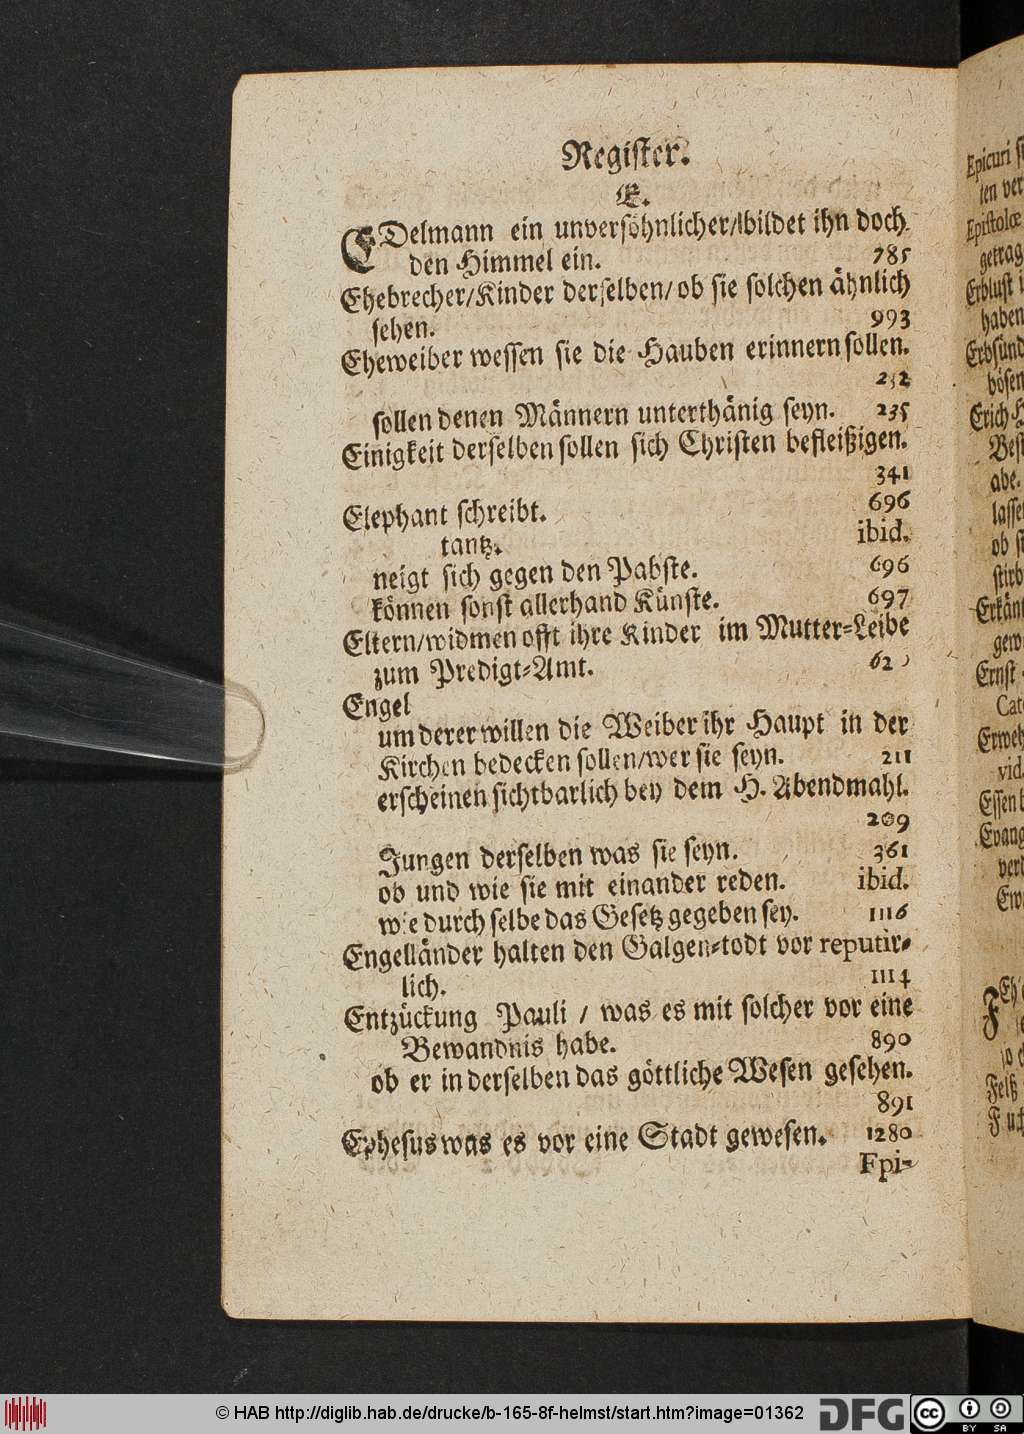 Register.
E.
EDelmann ein unversöhnlicher/bildet ihn doch
den Himmel ein. 785
Ehebrecher/Kinder derselben/ ob sie solchen ähnlich
sehen. 993
Eheweiber wessen sie die Hauben erinnern sollen.
232
sollen denen Männern unterthänig seyn. 235
Einigkeit derselben sollen sich Christen befleißigen.
341
Elephant schreibt. 696
tantz. ibid.
neigt sich gegen den Pabste. 696
können sonst allerhand Künste. 697
Eltern/widmen offt ihre Kinder im Mutter-Leibe
zum Predigt-Amt. 62
Engel
um derer willen die Weiber ihr Haupt in der
Kirchen bedecken sollen/wer sie seyn. 211
erscheinen sichtbarlich bey dem H. Abendmahl.
209
Zungen derselben was sie seyn. 361
ob und wie sie mit einander reden. ibid.
wie durch selbe das Gesetz gegeben sey. 1116
Engelländer halten den Galgen-todt vor reputir-
lich. 1114
Entzückung Pauli / was es mit solcher vor eine
Bewandnis habe. 890
ob er in derselben das göttliche Wesen gesehen.
891
Ephesus was es vor eine Stadt gewesen. 1280
Epi-
Epicuri
Epistolæ
getrag
Erblust
haben
Erbsünd
bösen
Erich H
Best
abe.
lasse
ob st
stirb
Erkänt
gew
Ernst
Cat
Erweh
vid.
Essen
Evang
© HAB http://diglib.hab.de/drucke/b-165-8f-helmst/start.htm?image=01362
DFG
cc
BY SA